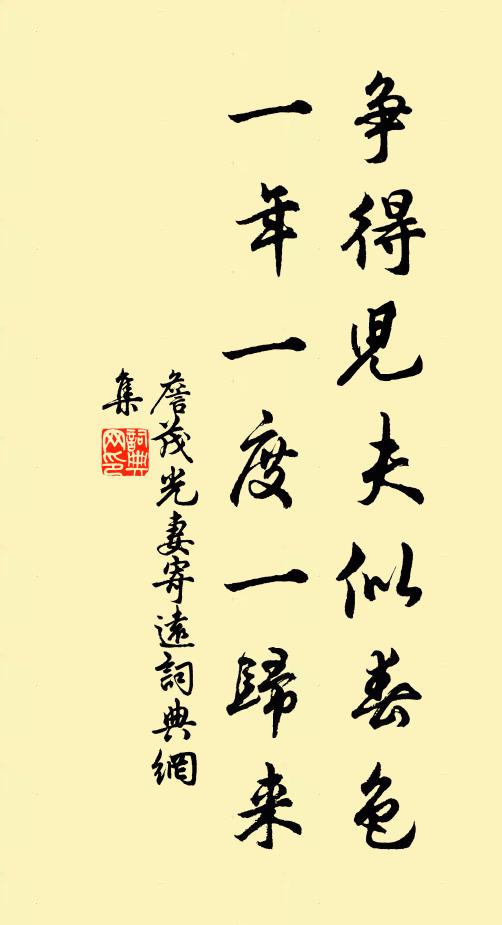 争得兒夫似春色
一年一度一歸来
詹茂光妻寄遠詞典網
集
詞典
网印